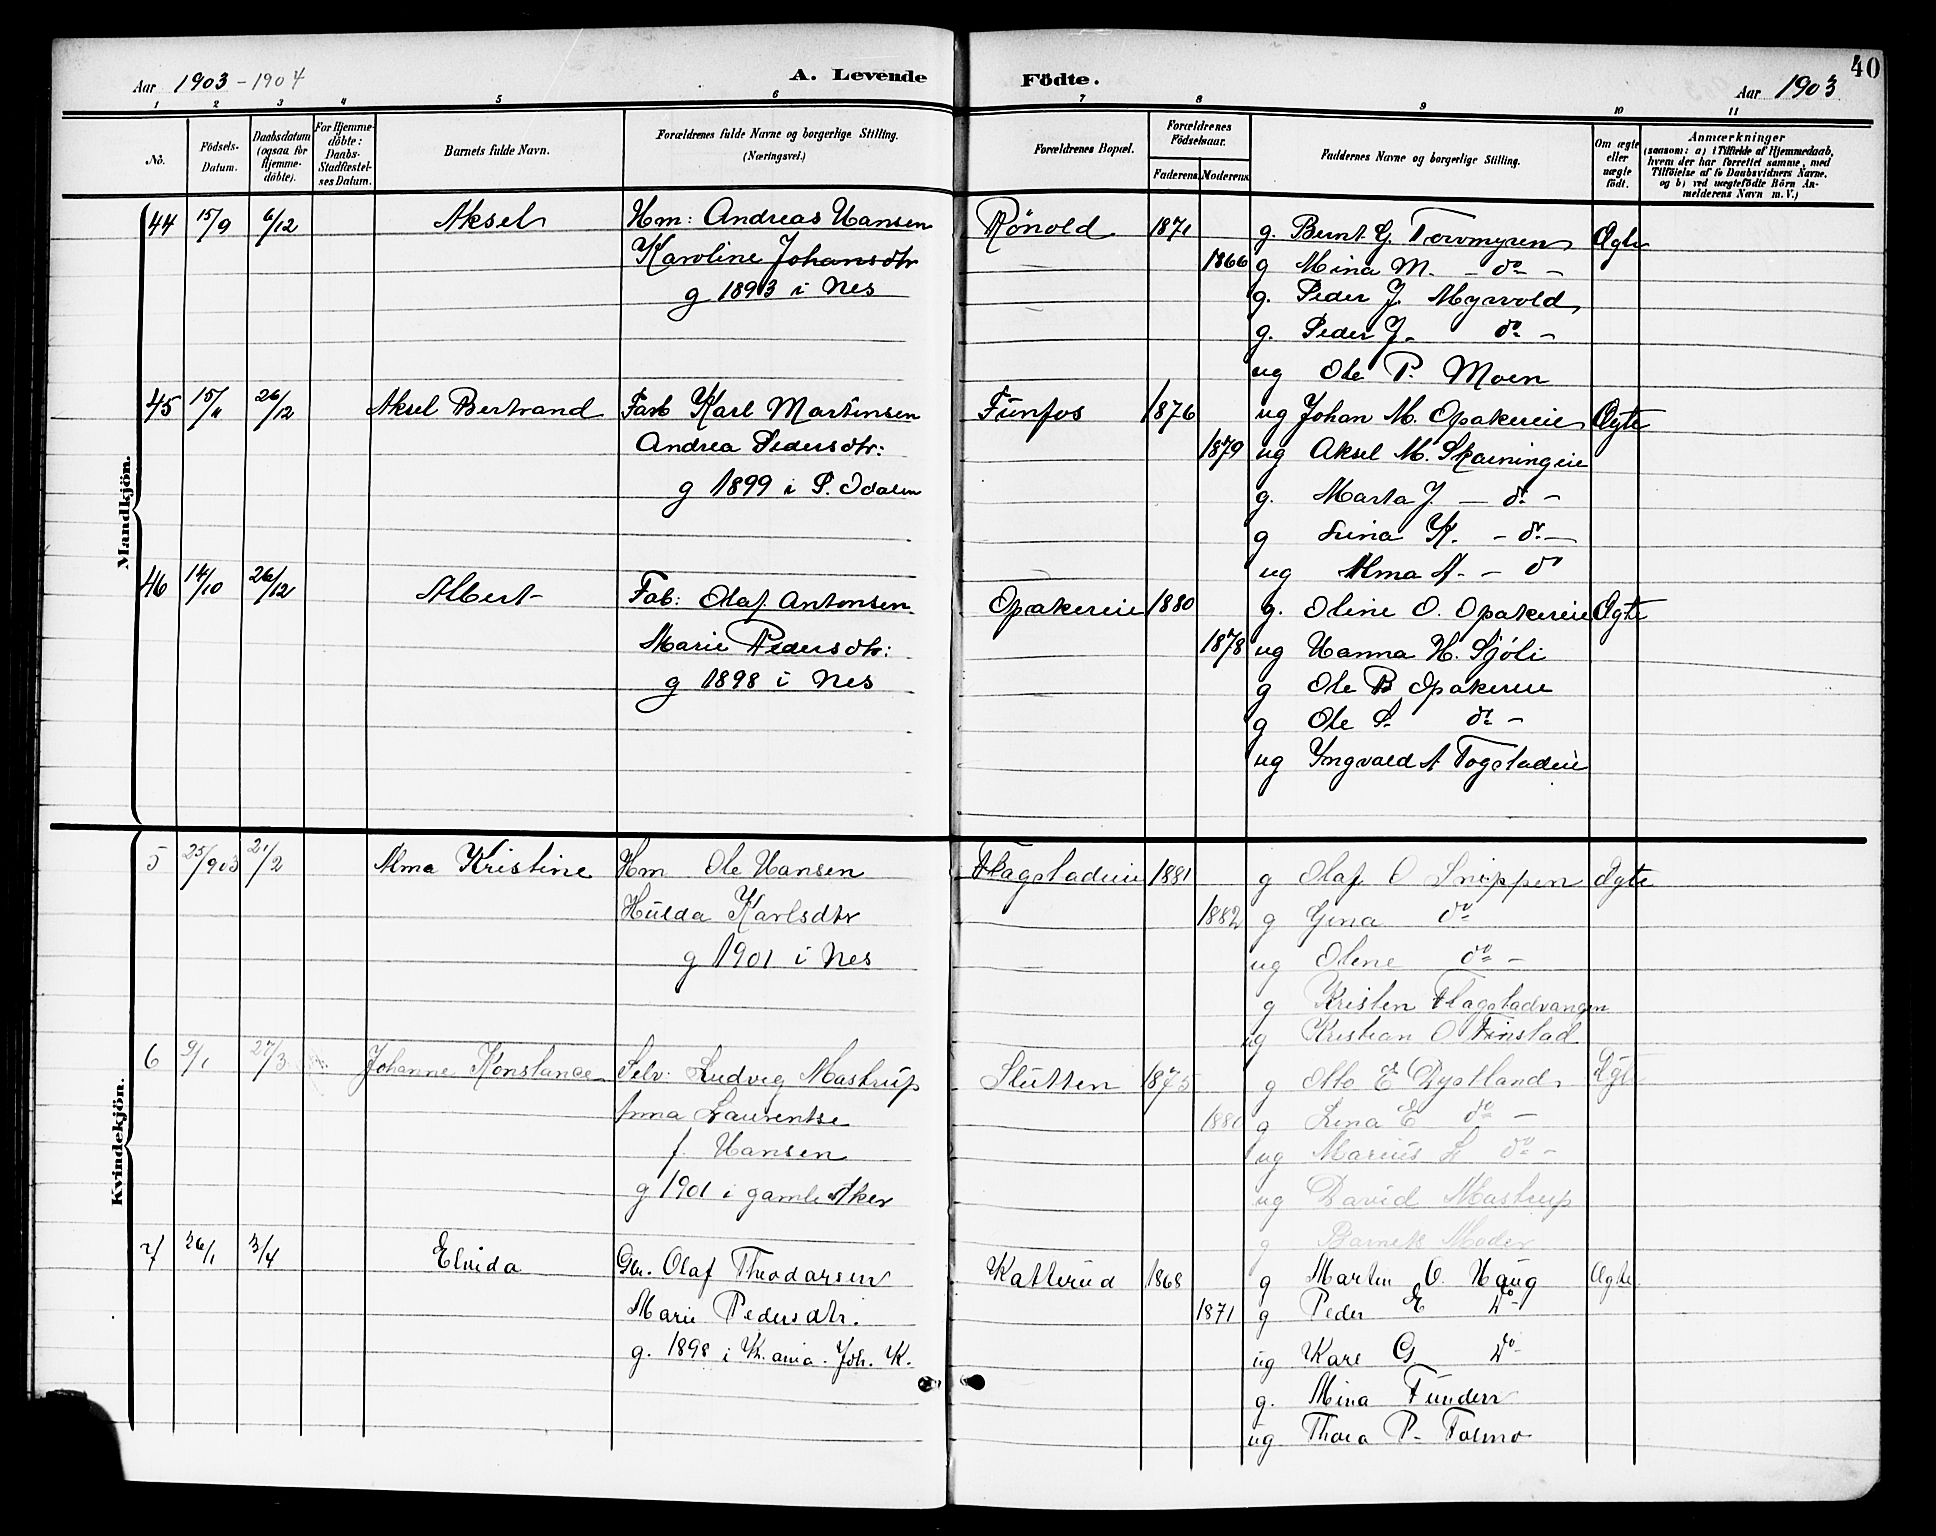 40
Aar 1903 - 1904 A. Levende Födte. Aar 1903
1 2 3 4 5 6 7 8 9 10 11
No. Födsels-Datum. Daabsdatum (ogsaa for Hjemme-döbte). For Hjemme-döbte: Daabs-Stadfæstel-ses Datum. Barnets fulde Navn. Forældrenes fulde Navne og borgerlige Stilling. (Næringsvei.) Forældrenes Bopæl. Forældrenes Födselsaar. Faderens Moderens Faddernes Navne og borgerlige Stilling. Om ægte eller uægte födt. Anmærkninger (saasom: a) i Tilfælde af Hjemmedaab, hvem der har forrettet samme, med Tilföielse af to Daabsvidners Navne, og b) ved uægtefödte Börn An-melderens Navn m. V.)
Mandkjön.
44 15/9 6/12 Aksel Hm: Andreas Hansen Rönold 1871 g. Bernt G. Torvmyren Ægte
Karoline Johansdtr 1866 g Mina M. - do -
g 1893 i Nes g. Peder J. Myrvold
g. Peder J. do -
ug Ole P. Moen
45 15/11 26/12 Aksel Bertrand Farb Karl Martinsen Funfos 1876 ug Johan M. Opakereie Ægte
Andrea Pedersdtr: 1879 ug Aksel M. Skarningeie
g 1899 i P. Odalen g. Marta J. - do -
g Lina K. - do -
ug Alma A. - do
46 14/10 26/12 Albert Fab: Olaf Antonsen Opakereie 1880 g. Oline O. Opakereie Ægte
Marie Pedersdtr: 1878 ug Hanna H. Sjöli
g 1898 i Nes g Ole B Opakereie
g Ole S. do -
ug Yngvald A Fogstadeie
Kvindekjön.
5 25/9 03 21/2 Alma Kristine Hm Ole Hansen Flagstadeie 1881 g Olaf O Snippen Ægte
Hulda Karlsdtr 1882 g Gina do
g 1901 i Nes ug Oline do -
g Kristen Flagstadvangen
ug Kristian O Finstad
6 9/1 27/3 Johanne Konstance Selv: Ludvig Mastrup Slutten 1875 g Otto E Dystland Ægte
Anna Laurentse 1880 g Lina E do -
f. Hansen ug Marius L do -
g 1901 i gamle Aker ug David Mastrup
g Barnets Moder
7 26/1 3/4 Elvida Gbr. Olaf Theodorsen Katterud 1868 g Martin O. Haug Ægte.
Marie Pedersdtr. 1871 g Peder E do
g. 1898 i Kr.ania. Joh. K. ug Karl G do
g. Mina Funderr
ug Thora P. Tolmo